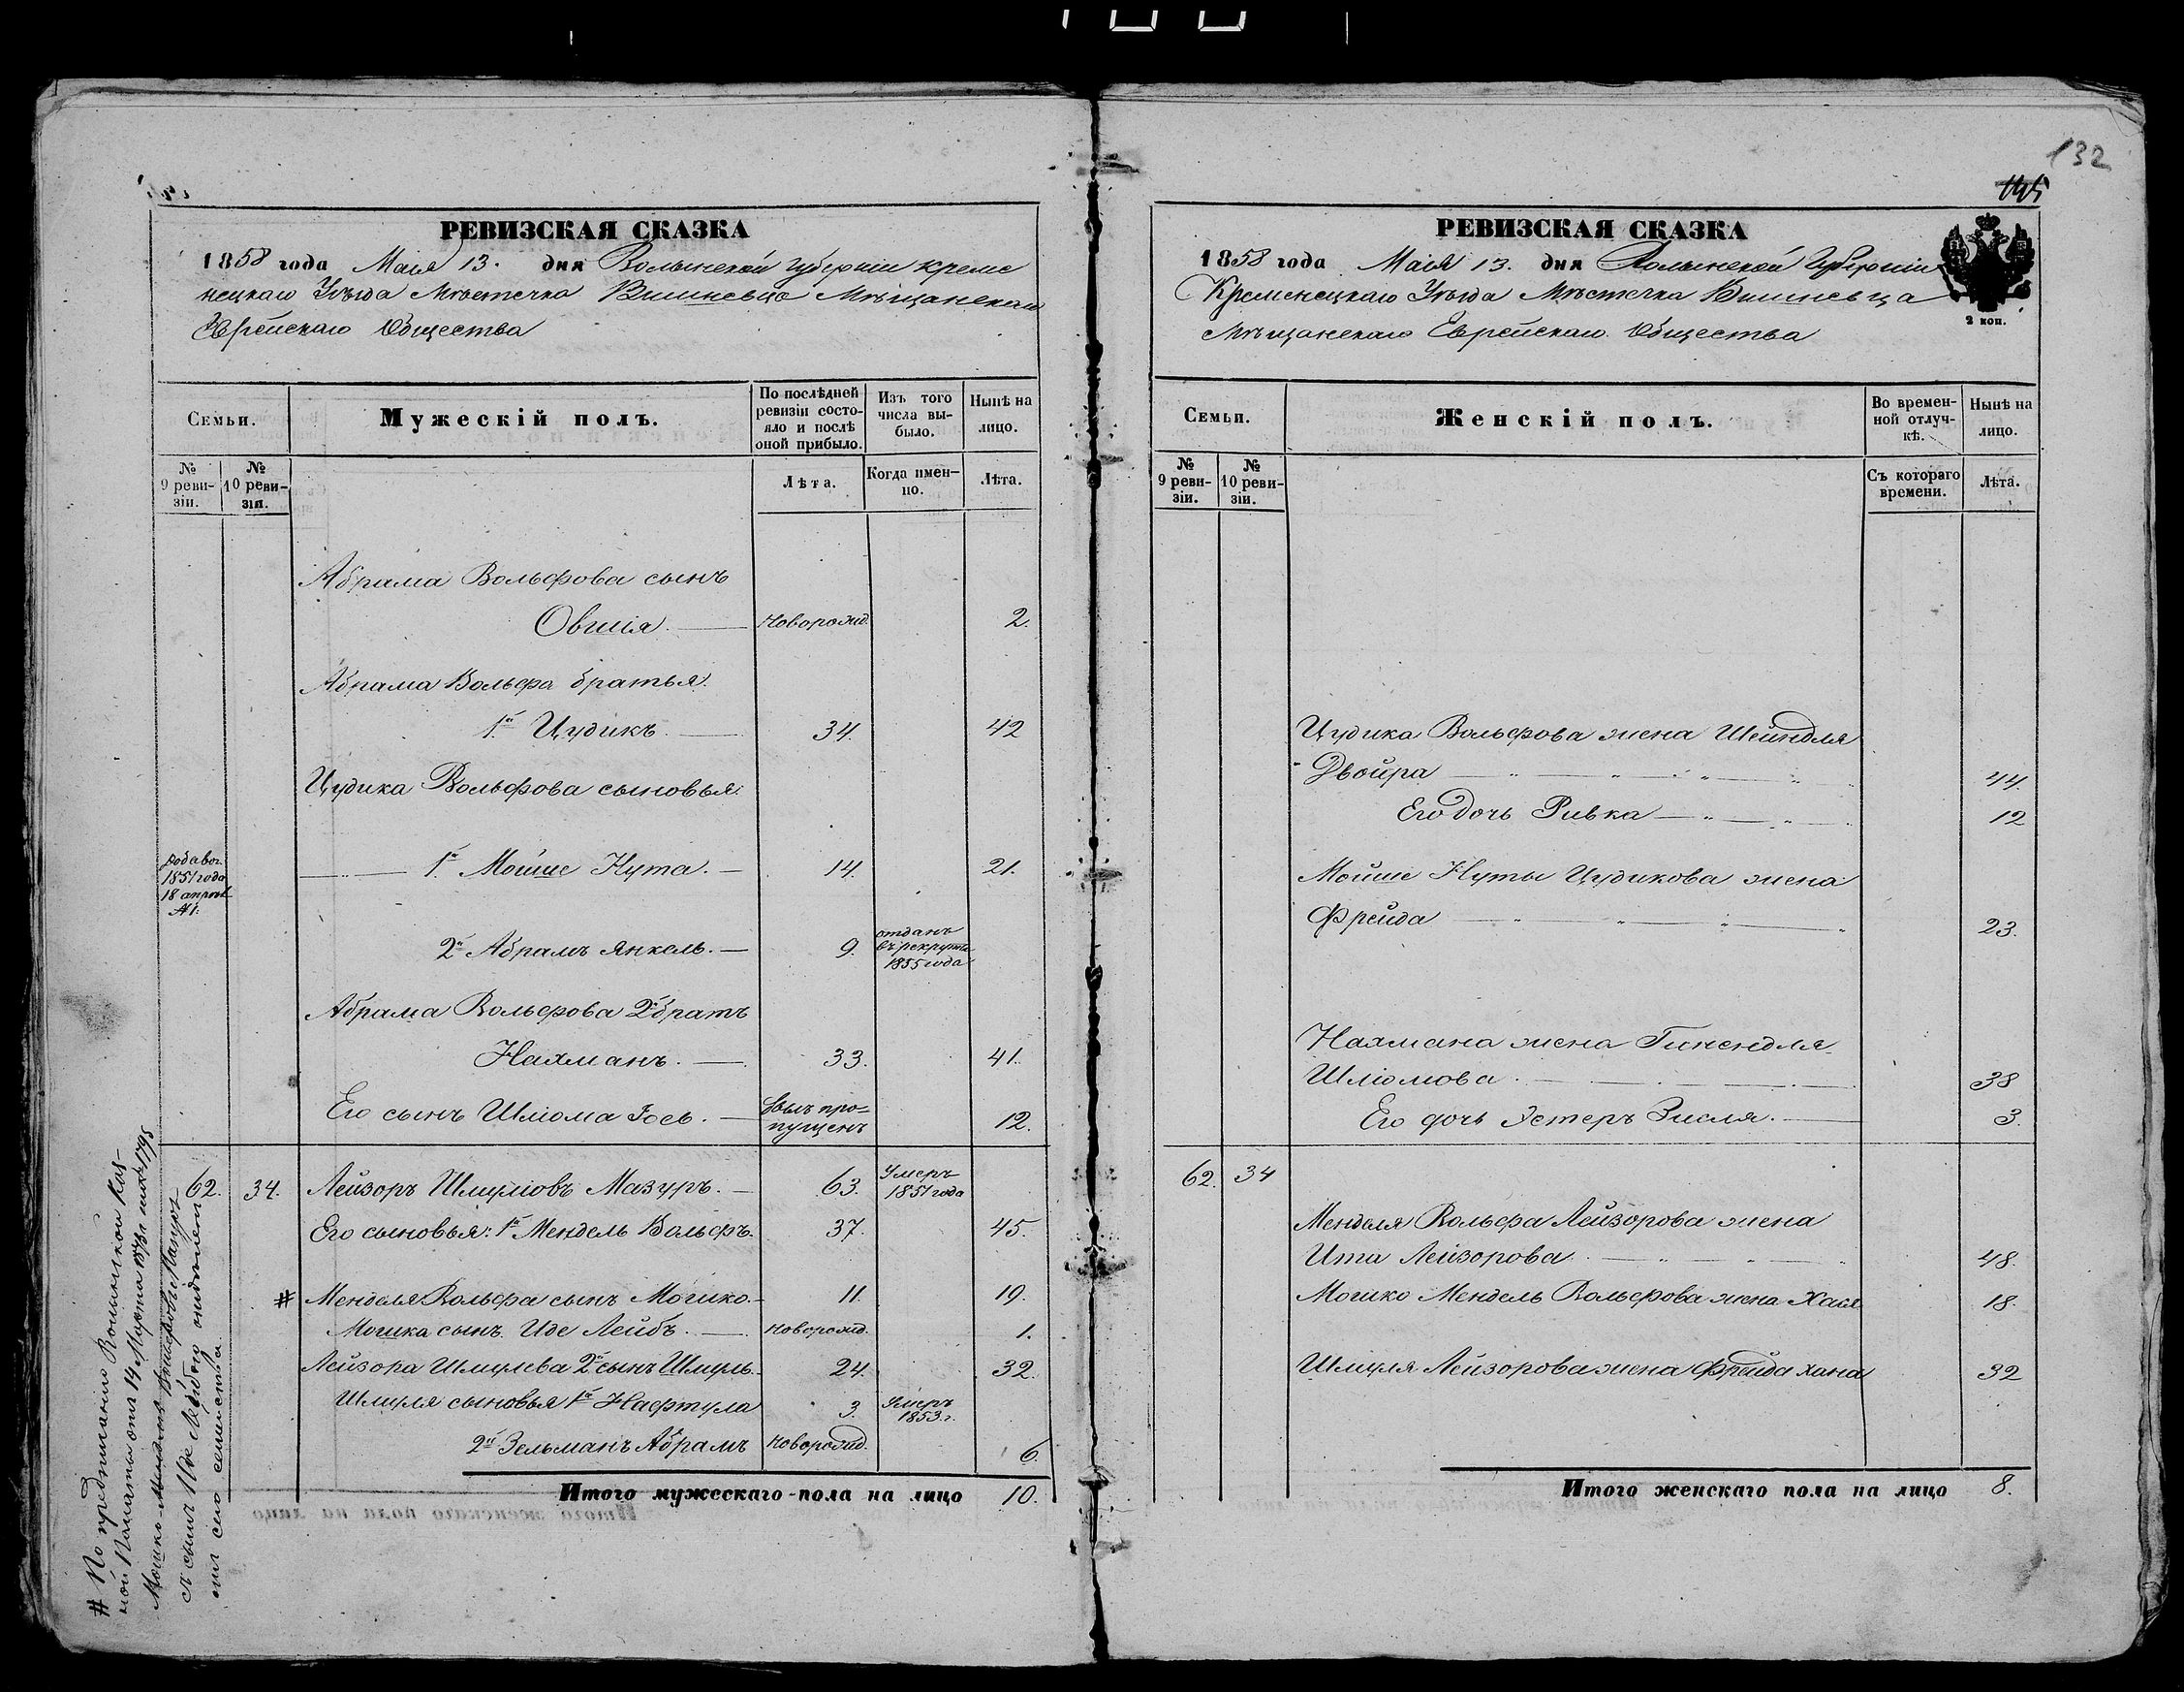 132
145
РЕВИЗСКАЯ СКАЗКА
1858 года Маія 13. дня Волынской Губерніи Креме
нецкаго Уѣзда Мѣстечка Вишневца Мѣщанскаго
Еврейскаго Общества
Семьи.
Мужескій полъ.
По послѣдней
ревизіи состо-
яло и послѣ
оной прибыло.
Изъ того
числа вы-
было.
Нынѣ на
лицо.
№
9 реви-
зіи.
№
10 реви-
зіи.
Лѣта.
Когда имен-
но.
Лѣта.
Абрама Вольфова сынъ
Овшія. Новорожд. 2.
Абрама Вольфа братья.
1й Цудикъ. 34. 42
Цудика Вольфова сыновья:
добавоч.
1851 года
18 апрѣля
№ 1:
1й Мойше Нута. 14. 21.
2й Абрамъ Янкель. 9. отданъ
въ рекруты
1855 года
Абрама Вольфова 2й братъ
Нахманъ. 33. 41.
Его сынъ Шліома Іось. былъ про=
пущенъ 12.
62. 34. Лейзоръ Шмуліовъ Мазуръ. 63. Умеръ
1851 года
Его сыновья: 1й Мендель Вольфъ. 37. 45.
# Менделя Вольфа сынъ Мошко. 11. 19.
Мошка сынъ Иде Лейбъ. Новорожд. 1.
Лейзора Шмулева 2й сынъ Шмуль. 24. 32.
Шмуля сыновья 1й Нафтула 3. Умеръ
1853 г.
2й Зельманъ Абрамъ Новорожд. 6.
Итого мужескаго-пола на лицо 10.
# По предписанію Волынской Каз-
ной Палаты отъ 14 Марта
Мошко
съ сыномъ Иде Лейбою
отъ сего семейства.
РЕВИЗСКАЯ СКАЗКА
2 коп.
1858 года Маія 13. дня Волынской Губерніи
Кременецкаго Уѣзда Мѣстечка Вишневца
Мѣщанскаго Еврейскаго Общества
Семьи.
Женскій полъ.
Во времен-
ной отлуч-
кѣ.
Нынѣ на
лицо.
№
9 реви-
зіи.
№
10 реви-
зіи.
Съ котораго
времени.
Лѣта.
Цудика Вольфова жена Шейндля
Двойра 44.
Его дочь Ривка 12
Мойше Нуты Цудикова жена
Фрейда 23.
Нахмана жена Гинендля
Шліомова. 38
Его дочь Эстеръ Зисля. 3.
62. 34
Менделя Вольфа Лейзорова жена
Ита Лейзорова 48.
Мошко Мендель Вольфова жена Хая 18.
Шмуля Лейзорова жена Фрейда Хана 32
Итого женскаго пола на лицо 8.